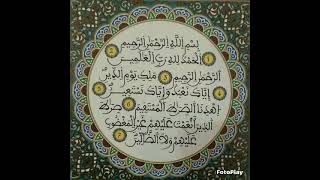 بسم الله الرحمن الرحيم ①
الحمد لله رب العلمين ②
الرحمن الرحيم ③ ملك يوم الدين ④
إياك نعبد وإياك نستعين ⑤
اهدنا الصراط المستقيم ⑥ صراط
الذين أنعمت عليهم غير المغضوب
عليهم ولا الضالين ⑦
FotoPlay